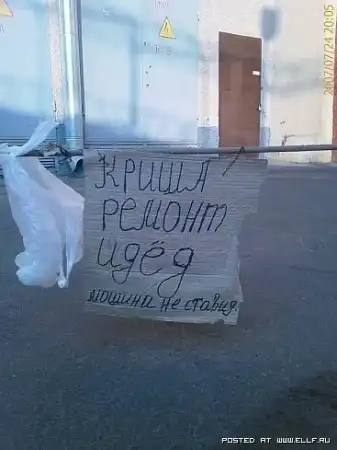 2007/07/24 20:05
криша
ремонт
идёд
мошина не ставид.
POSTED AT WWW.ELLF.RU